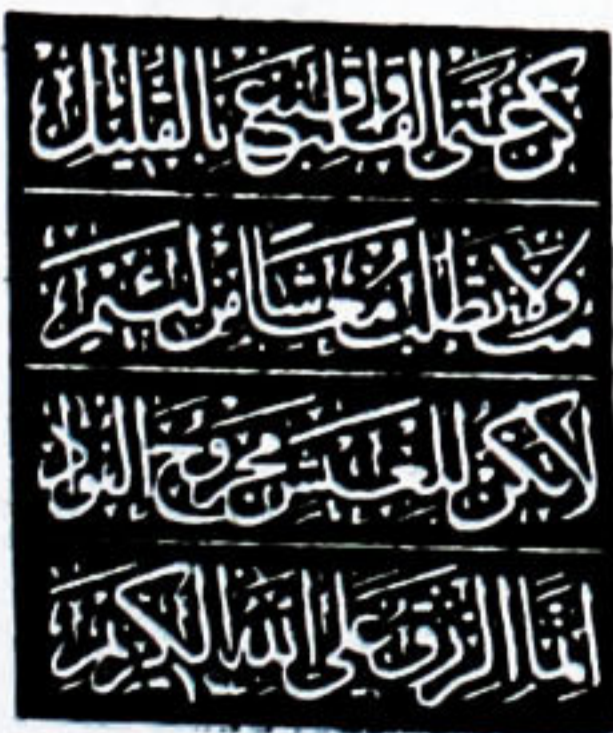 كن غنى القلب واقنع بالقليل
مت ولا تطلب معاشا من لئيم
لا تكن للعيش مجروح الفؤاد
انما الرزق على الله الكريم